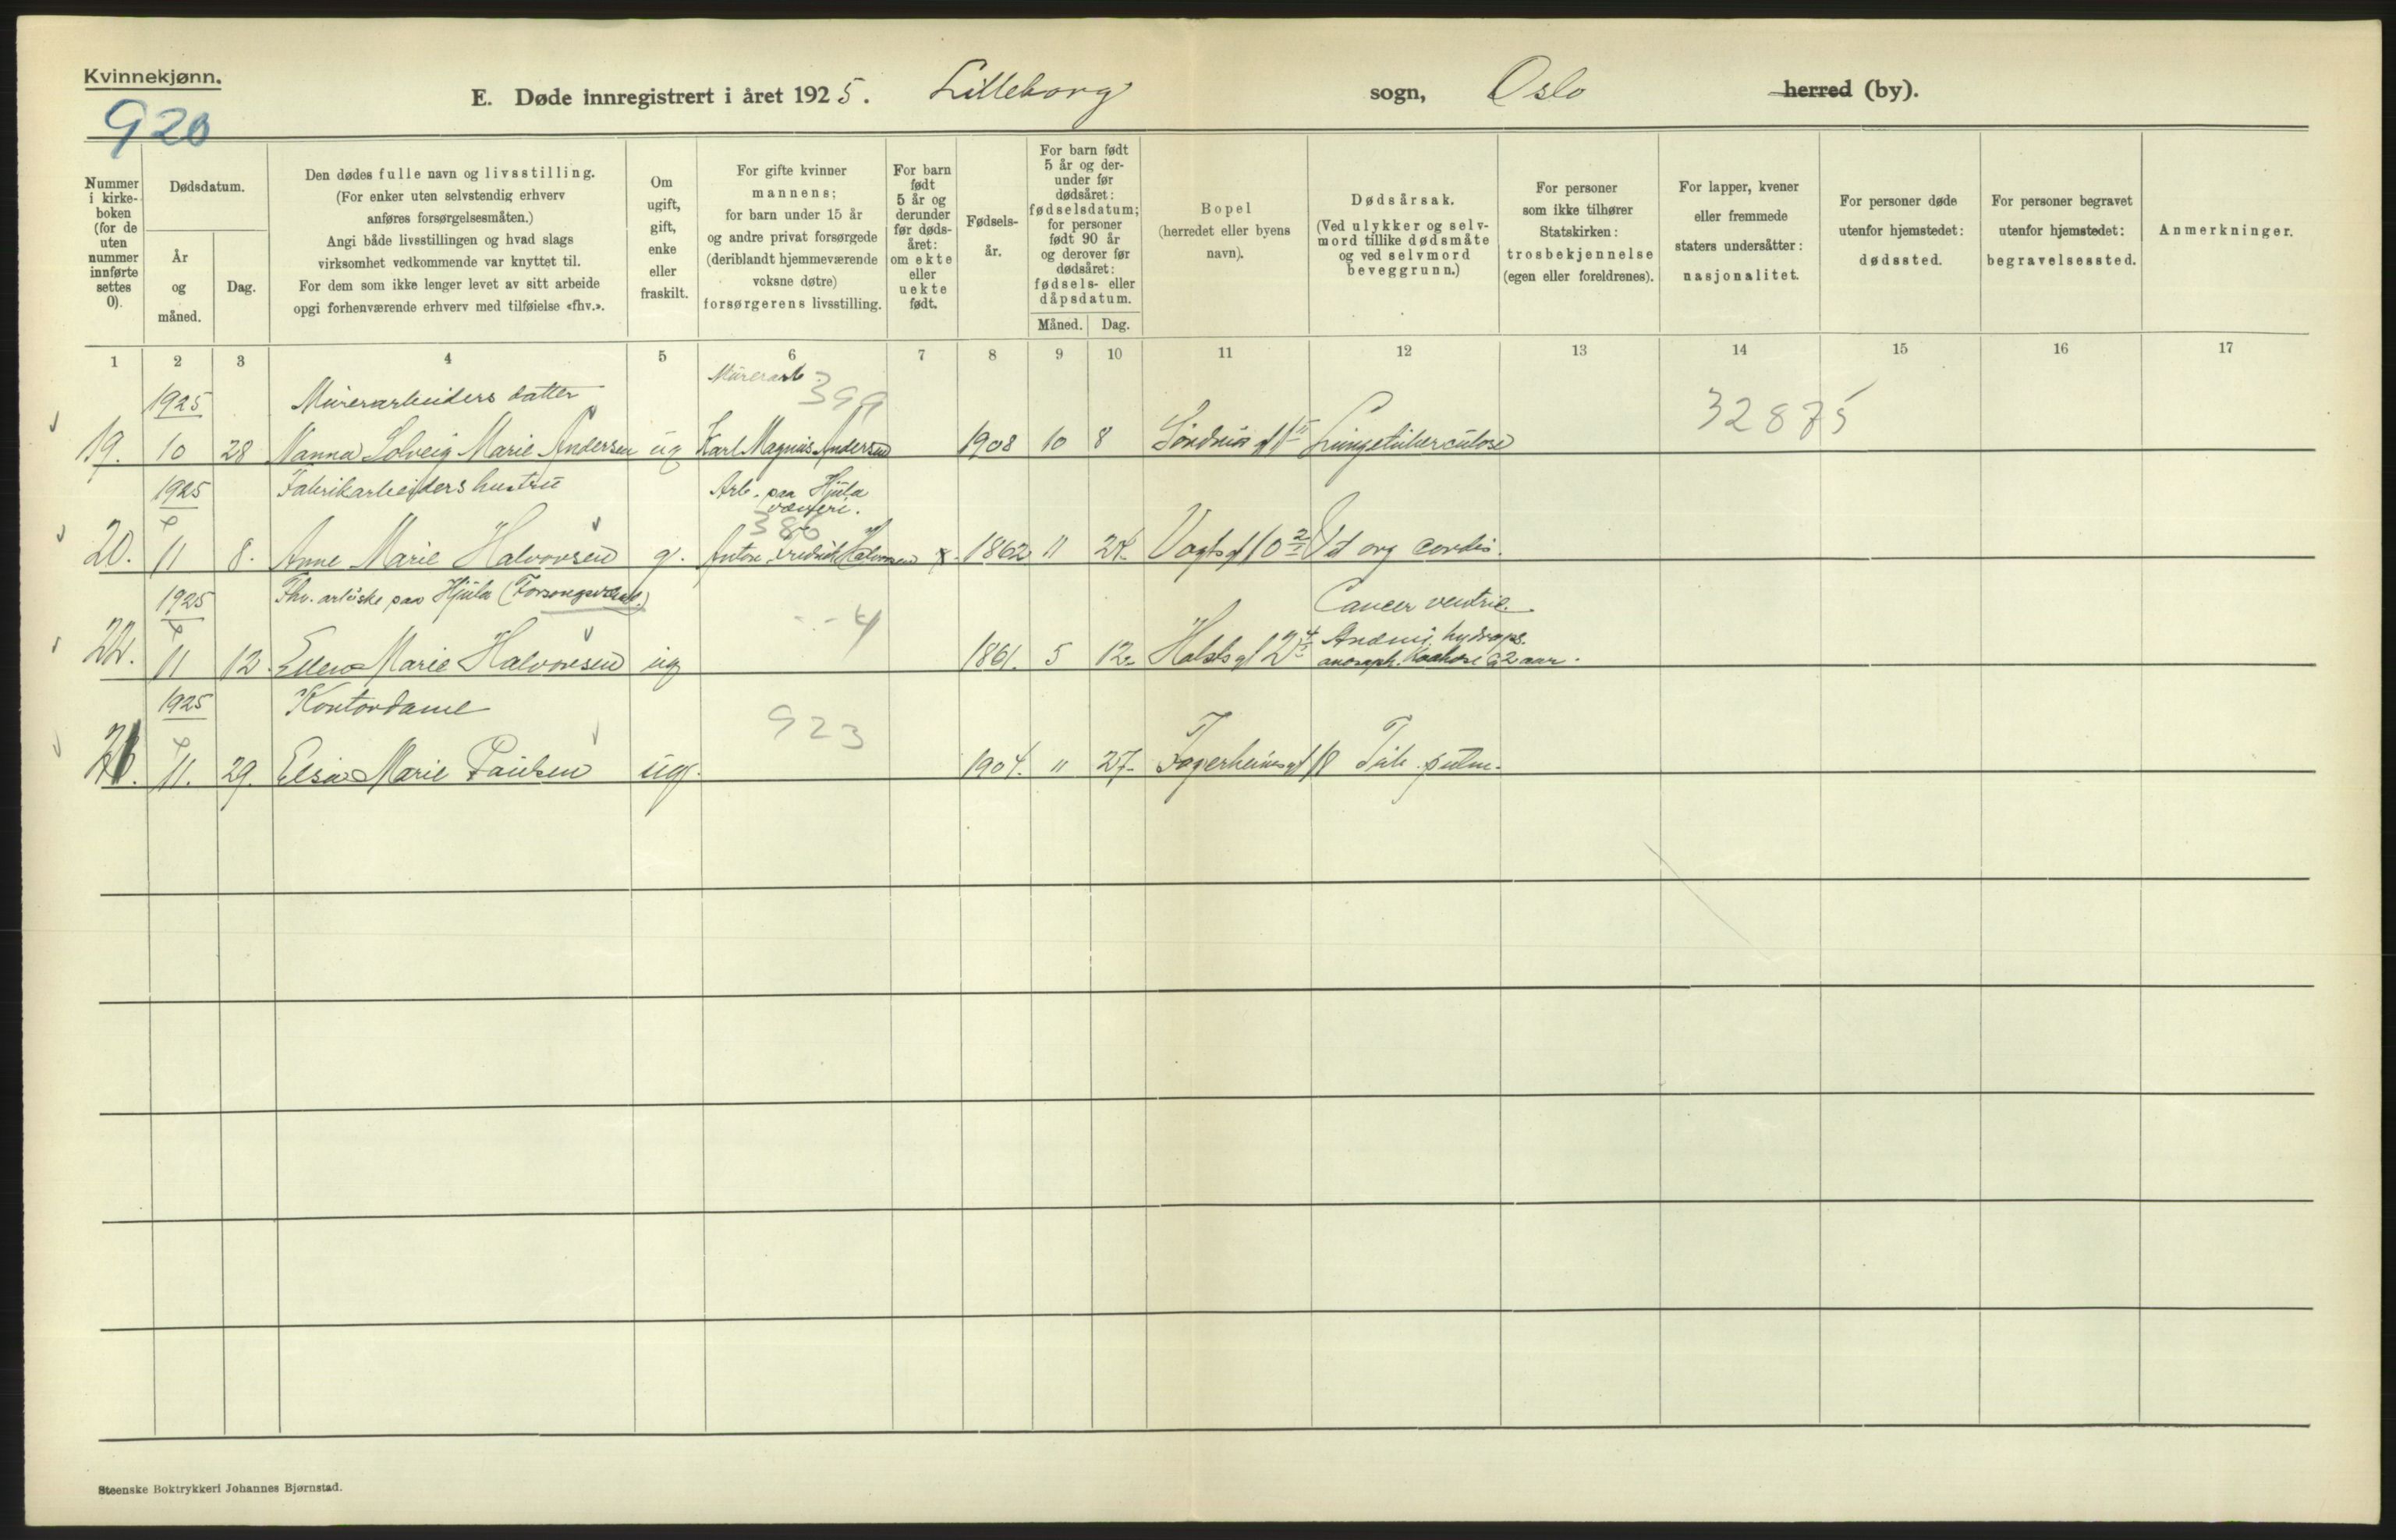 Kvinnekjønn.
920
E. Døde innregistrert i året 1925. Lilleborg sogn, Oslo herred (by).
Nummer i kirkeboken (for de uten nummer innførte settes 0).
Dødsdatum.
År og måned.
Dag.
Den dødes fulle navn og livsstilling.
(For enker uten selvstendig erhverv
anføres forsørgelsesmåten.)
Angi både livsstillingen og hvad slags
virksomhet vedkommende var knyttet til.
For dem som ikke lenger levet av sitt arbeide
opgi forhenværende erhverv med tilføielse «fhv.».
Om ugift, gift, enke eller fraskilt.
For gifte kvinner
mannens;
for barn under 15 år
og andre privat forsørgede
(deriblandt hjemmeværende
voksne døtre)
forsørgerens livsstilling.
For barn født 5 år og derunder før dødsåret: om ekte eller uekte født.
Fødselsår.
For barn født 5 år og derunder før dødsåret: fødselsdatum; for personer født 90 år og derover før dødsåret: fødsels- eller dåpsdatum.
Måned. Dag.
Bopel
(herredet eller byens
navn).
Dødsårsak.
(Ved ulykker og selvmord tillike dødsmåte
og ved selvmord
beveggrunn.)
For personer
som ikke tilhører
Statskirken:
trosbekjennelse
(egen eller foreldrenes).
For lapper, kvener
eller fremmede
staters undersåtter:
nasjonalitet.
For personer døde
utenfor hjemstedet:
dødssted.
For personer begravet
utenfor hjemstedet:
begravelsessted.
Anmerkninger.
1 2 3 4 5 6 7 8 9 10 11 12 13 14 15 16 17
1925 Murerarbeiders datter Murerarb. 399 32875
19. 10 28 Nanna Solveig Marie Andersen ug Karl Magnus Andersen 1908 10 8 Lungetuberculose
1925 Fabrikarbeiders hustru Arb. paa Hjula
væveri.
386
20. 11 8. Anne Marie Halvorsen g. Anton Fredrik Halvorsen 1862 11 24. Vogtsgt 10 Vit org cordis.
1925 Fhv. arb.ske paa Hjula Cancer ventric.
4
22. 11 12. Ellen Marie Halvorsen ug 1861. 5 12. Holstsgt 12 Anæmi, hydrops.
2 aar.
1925 Kontordame
923
11. 29. Elsa Marie Paulsen ug. 1904. 11 27. Fagerheimsgt 18 Tub. pulm.
Steenske Boktrykkeri Johannes Bjørnstad.